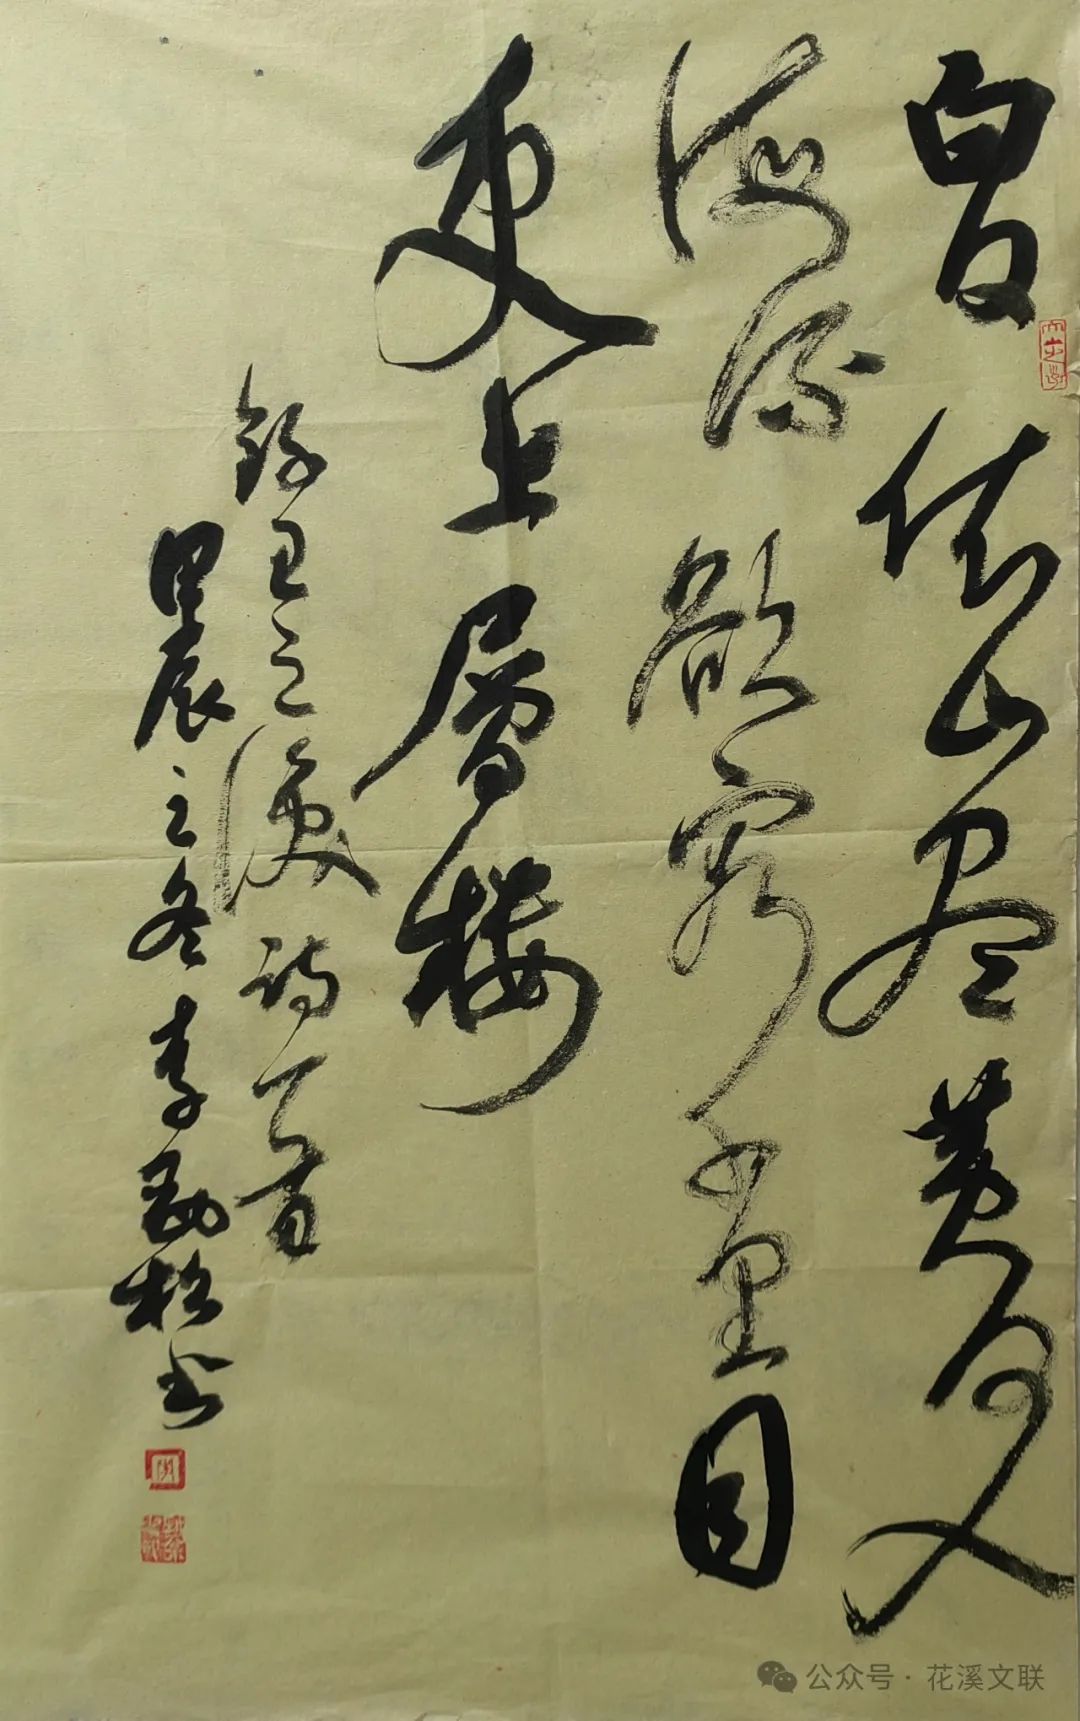 白日依山尽黄河入
海流欲穷千里目
更上層楼
録王之涣诗一首
甲辰之冬李劲松书
公众号 · 花溪文联